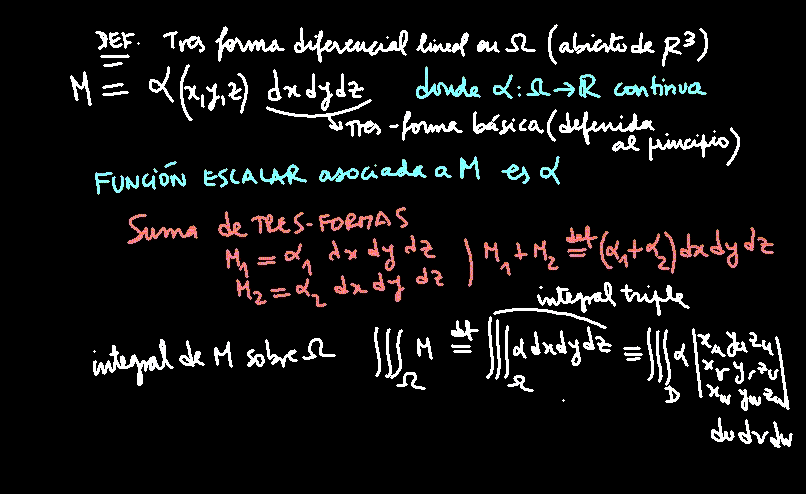 DEF. Tres forma diferencial lineal en Ω (abierto de R³)
M = α(x,y,z) dx dy dz donde α: Ω → R continua
↳ Tres-forma básica (definida
al principio)
FUNCIÓN ESCALAR asociada a M es α
Suma de TRES-FORMAS
M₁ = α₁ dx dy dz ) M₁ + M₂ ≝ (α₁ + α₂) dx dy dz
M₂ = α₂ dx dy dz
integral triple
integral de M sobre Ω ∭_Ω M ≝ ∭_Ω α dx dy dz ≡ ∭_D α |x_u y_u z_u
x_v y_v z_v
x_w y_w z_w|
du dv dw